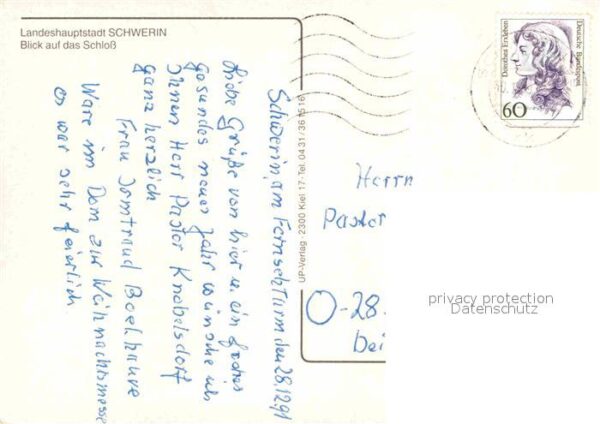 Landeshauptstadt SCHWERIN
Blick auf das Schloß
Schwerin, am Fernsehturm den 28.12.91
Liebe Grüße von hier u. ein frohes
gesundes neues Jahr wünsche ich
Ihnen Herr Pastor Knobelsdorf
ganz herzlich
Frau Irmtraud
Ware im Dom zur Weihnachtsmesse
es war sehr feierlich
UP-Verlag · 2300 Kiel 17 · Tel. 0431/361516
Dorothea Erxleben
Deutsche Bundespost
60
Herrn
Pastor
O-28
bei
privacy protection
Datenschutz